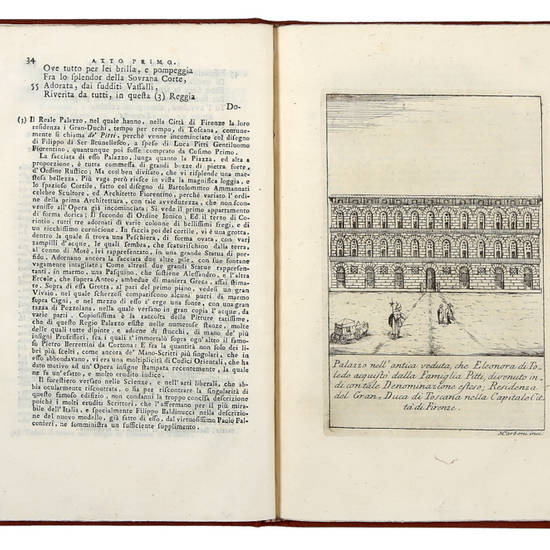 34 ATTO PRIMO.
Ove tutto per lei brilla, e pompeggia
Fra lo splendor della Sovrana Corte,
55 Adorata, dai sudditi Vassalli,
Riverita da tutti, in questa (3) Reggia
Do-
(3) Il Reale Palazzo, nel quale hanno, nella Città di Firenze la loro
residenza i Gran-Duchi, tempo per tempo, di Toscana, comune-
mente si chiama de' Pitti, perchè venne incominciato col disegno
di Filippo di Ser Brunellesco, a spese di Luca Pitti Gentiluomo
Fiorentino, quantunque poi fosse comprato da Cosimo Primo.
La facciata di esso Palazzo, lunga quanto la Piazza, ed alta a
proporzione, è tutta commessa di grandi bozze di pietra forte,
d'Ordine Rustico; Ma così ben divisato, che vi risplende una mae-
stosa bellezza. Più vaga però riesce in vista la magnifica loggia, e
lo spazioso Cortile, fatto col disegno di Bartolommeo Ammannati
celebre Scultore, ed Architetto Fiorentino, perchè variato l'or-
dine della prima Architettura, con tale avvedutezza, che non scon-
venisse all'Opera già incominciata; Si vede il primo appartamento
di forma dorica; Il secondo di Ordine Ionico; Ed il terzo di Co-
rintio, tutti adorni nelle colonne di bellissimi fregi, e di
un ricchissimo cornicione. In faccia poi del cortile, vi è una grotta,
dentro la quale si trova una Peschiera, di forma ovata, con varj
zampilli d'acque, le quali sembra, che scaturischino dalla terra,
al cenno di Mosè, ivi rappresentato, in una grande Statua di por-
fido. Adornano ancora la facciata due altre
vagamente intagliate; Come altresì due grandi Statue rappresen-
tanti, in marmo, una Pasquino, che sostiene Alessandro; e l'altra
Ercole, che supera Anteo, ambedue di maniera Greca, assai stima-
te. Sopra di essa Grotta, al pari del primo piano, vedesi un gran
Vivaio, nel quale scherzar compariscono alcuni putti da marmo
sopra Cigni, e nel mezzo di esso s'erge una fonte, con una gran
tazza di Pozzolana, nella quale versano in gran copia l'acque, da
varie parti. Copiosissima è la raccolta delle Pitture rarissime,
che di questo Regio Palazzo esiste nelle numerose stanze, molte
delle quali tutte dipinte, e adorne di stucchi, di mano de' più
insigni Professori, fra i quali d'immortal sopra ogn'altro il famo-
so Pietro Berrettini da Cortona; E fra la quantità non solo dei Li-
bri più scelti, come ancora de' Mano-Scritti più singolari, che in
esso abbondavano, vi era una moltiplicità di Codici Orientali, che ha
dato motivo ad un'Opera insigne stampata recentemente, la quale
ne fa un'esatto, e molto erudito indice.
Il forestiero versato nelle Scienze, e nell'arti liberali, che ab-
bia ocularmente riscontrato, o sia per riscontrare la singolarità di
questo famoso edifizio, non condanni la troppo concisa descrizione
poichè i molti eruditi Scrittori, che l'asseriscono per il più mira-
bile dell'Italia, e specialmente Filippo Baldinucci nella descrizio-
ne del nuovo modello, già fatto di esso, dal virtuosissimo Paolo Fal-
conieri, ne somministra un sufficiente supplimento.
Palazzo nell'antica veduta, che Eleonora di To-
ledo acquistò dalla Famiglia Pitti, divenuto in-
di con tale Denominazione esteso, Residenza
del Gran=Duca di Toscana nella Capitale Cit-
tà di Firenze.
M. Carboni inci.